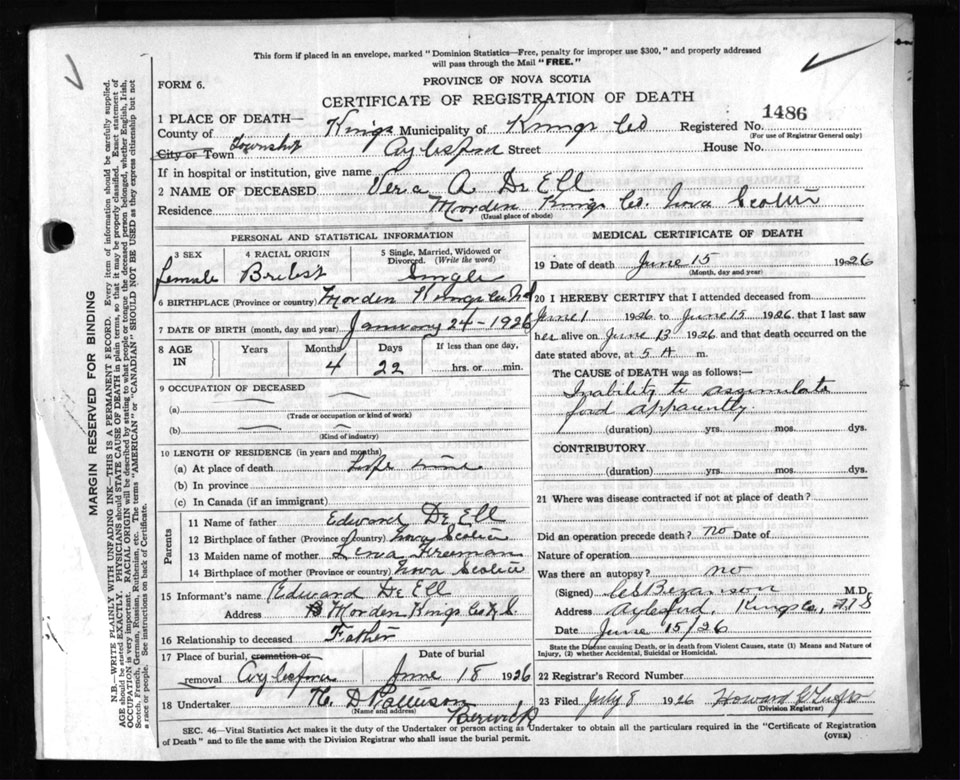 This form if placed in an envelope, marked "Dominion Statistics—Free, penalty for improper use $300," and properly addressed
will pass through the Mail "FREE."
FORM 6.
PROVINCE OF NOVA SCOTIA
CERTIFICATE OF REGISTRATION OF DEATH
1 PLACE OF DEATH—
County of Kings Municipality of Kings Co Registered No. 1486
(For use of Registrar General only)
City or Town Township Aylesford Street House No.
If in hospital or institution, give name
2 NAME OF DECEASED Vera A. De Ell
Residence Morden Kings Co. Nova Scotia
(Usual place of abode)
PERSONAL AND STATISTICAL INFORMATION
3 SEX 4 RACIAL ORIGIN 5 Single, Married, Widowed or
Divorced. (Write the word)
female British Single
6 BIRTHPLACE (Province or country) Morden Kings Co NS
7 DATE OF BIRTH (month, day and year) January 24-1926
8 AGE IN Years Months Days If less than one day,
4 22 hrs. or min.
9 OCCUPATION OF DECEASED
(a)
(Trade or occupation or kind of work)
(b)
(Kind of industry)
10 LENGTH OF RESIDENCE (in years and months)
(a) At place of death Life time
(b) In province
(c) In Canada (if an immigrant)
Parents
11 Name of father Edward De Ell
12 Birthplace of father (Province or country) Nova Scotia
13 Maiden name of mother Lena Freeman
14 Birthplace of mother (Province or country) Nova Scotia
15 Informant's name Edward De Ell
Address Morden Kings Co N.S.
16 Relationship to deceased Father
17 Place of burial, cremation or Date of burial
removal Aylesford June 18 1926
18 Undertaker H. D Pattison
(Name and address) Berwick
MEDICAL CERTIFICATE OF DEATH
19 Date of death June 15 1926
(Month, day and year)
20 I HEREBY CERTIFY that I attended deceased from
June 1 1926 to June 15 1926 that I last saw
her alive on June 13 1926 and that death occurred on the
date stated above, at 5 A m.
The CAUSE of DEATH was as follows:—
Inability to assimilate
food apparently.
(duration) yrs. mos. dys.
CONTRIBUTORY
(duration) yrs. mos. dys.
21 Where was disease contracted if not at place of death?
Did an operation precede death? no Date of
Nature of operation
Was there an autopsy? no
(Signed) Bezanson M.D.
Address Aylesford, Kings Co, N S
Date June 15/26
State the Disease causing Death, or in death from Violent Causes, state (1) Means and Nature of
Injury, (2) whether Accidental, Suicidal or Homicidal.
22 Registrar's Record Number
23 Filed July 8 1926 Howard
(Division Registrar)
SEC. 46—Vital Statistics Act makes it the duty of the Undertaker or person acting as Undertaker to obtain all the particulars required in the "Certificate of Registration
of Death" and to file the same with the Division Registrar who shall issue the burial permit. (OVER)
MARGIN RESERVED FOR BINDING
N.B.—WRITE PLAINLY WITH UNFADING INK—THIS IS A PERMANENT RECORD. Every item of information should be carefully supplied.
AGE should be stated EXACTLY. PHYSICIANS should STATE CAUSE OF DEATH in plain terms, so that it may be properly classified. Exact statement of
OCCUPATION is very important. RACIAL ORIGIN will be described by stating to what people or tongue the deceased person belonged, whether English, Irish,
Scotch, French, German, Russian, Ruthenian, etc. The terms "AMERICAN" or "CANADIAN" SHOULD NOT BE USED as they express citizenship but not
a race or people. See instructions on back of Certificate.